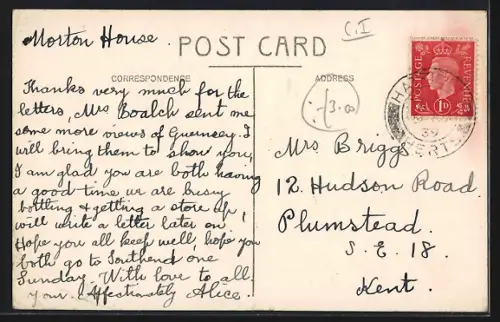 Morton House.
C.I
POST CARD
CORRESPONDENCE
ADDRESS
POSTAGE
REVENUE
1D
HA
39
HERTS
3.00
Thanks very much for the
letters, Mrs Boalch sent me
some more views of Guernsey. I
will bring them to show you,
I am glad you are both having
a good time we are busy
bottling & getting a store up,
will write a letter later on
Hope you all keep well, hope you
both go to Southend one
Sunday. With love to all.
your Affectionately Alice.
Mrs Briggs
12. Hudson Road.
Plumstead.
S.E.18.
Kent.